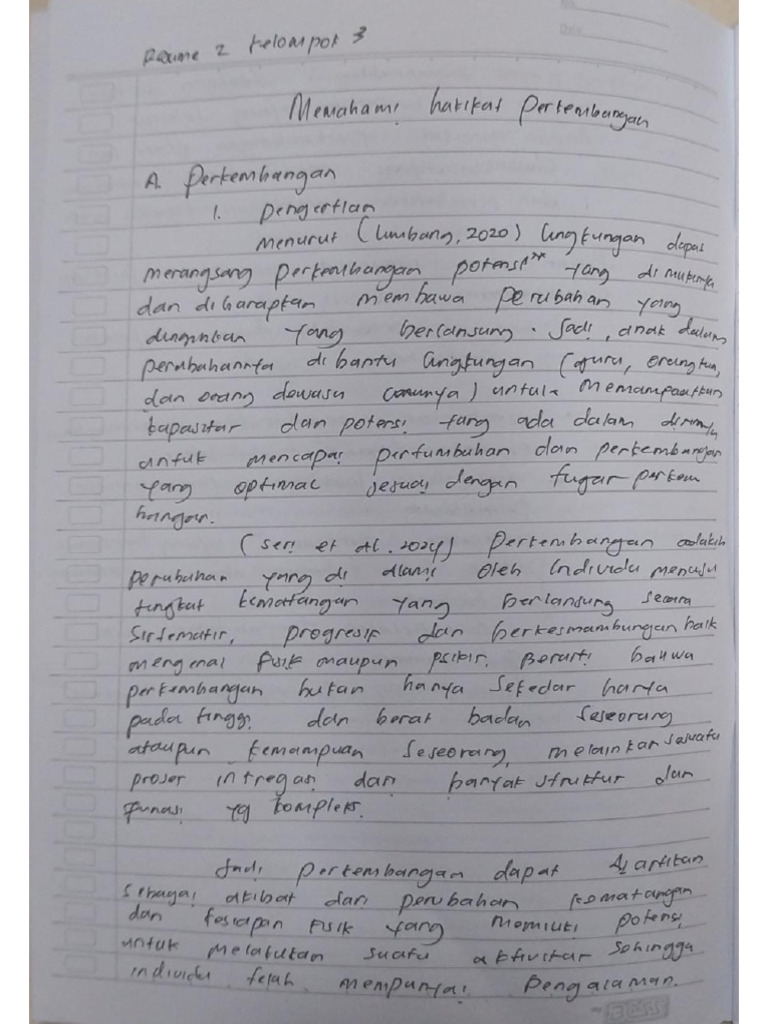 No.
Date
Resume 2 Kelompok 3
Memahami hakikat Perkembangan
A. Perkembangan
1. Pengertian
Menurut (Limbong, 2020) lingkungan dapat
merangsang perkembangan potensi" yang dimilikinya
dan diharapkan membawa perubahan yang
diinginkan yang berlansung. Jadi, anak dalam
perubahannya dibantu lingkungan (guru, orangtua,
dan orang dewasa lainnya) untuk memampaatkan
kapasitas dan potensi yang ada dalam dirinya
untuk mencapai pertumbuhan dan perkembangan
yang optimal sesuai dengan tugas perkem
bangan.
(Seri et al. 2024) Perkembangan adalah
perubahan yang di alami oleh Individu menuju
tingkat kematangan yang berlansung secara
Sistematis, progresif dan berkesinambungan baik
mengenai fisik maupun psikis. Berarti bahwa
perkembangan bukan hanya sekedar hanya
pada tinggi dan berat badan seseorang
ataupun kemampuan seseorang, melainkan sesuatu
proses intregasi dari banyak struktur dan
fungsi yg kompleks.
Jadi perkembangan dapat di artikan
sebagai akibat dari perubahan kematangan
dan kesiapan fisik yang memiliki potensi
untuk melakukan suatu aktivitas sehingga
individu telah mempunyai pengalaman.